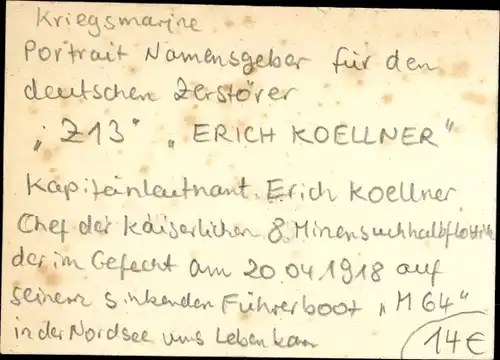 Kriegsmarine
Portrait Namensgeber für den
deutschen Zerstörer
„Z13" „ERICH KOELLNER"
Kapitänleutnant Erich Koellner
Chef der Kaiserlichen 8. Minensuchhalbflottille
der im Gefecht am 20.04.1918 auf
seinem sinkenden Führerboot „M64"
in der Nordsee ums Leben kam
14€